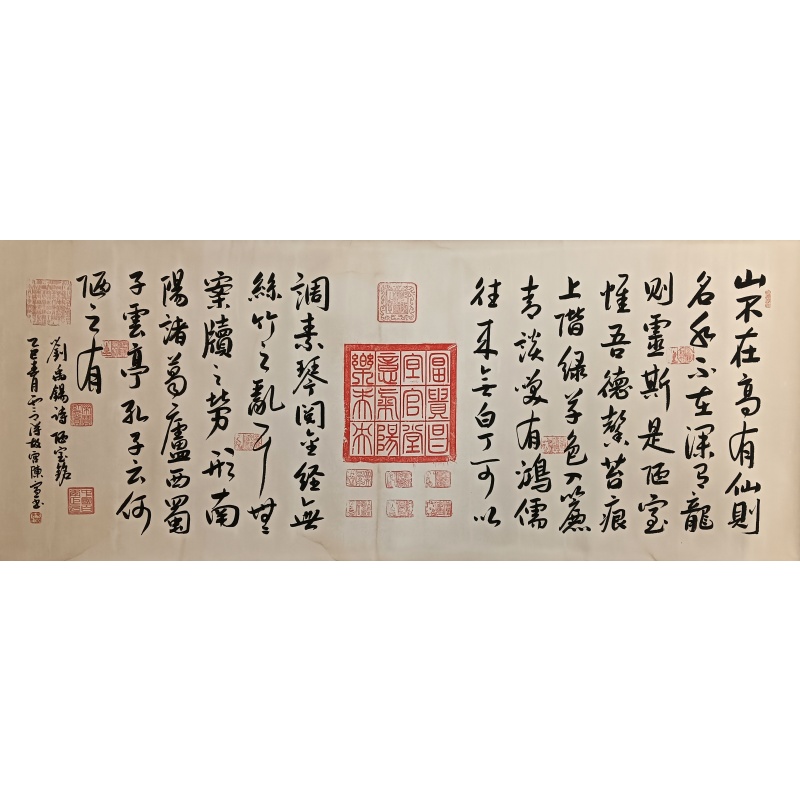 山不在高有仙則
名水不在深有龍
则靈斯是陋室
惟吾德馨苔痕
上階緑草色入簾
青談笑有鴻儒
往来无白丁可以
富貴昌
宜官堂
意氣陽
樂未央
調素琴閱金経無
絲竹之亂耳無
案牘之勞形南
陽諸葛廬西蜀
子雲亭孔子云何
陋之有
劉禹錫詩陋室銘
乙巳春月